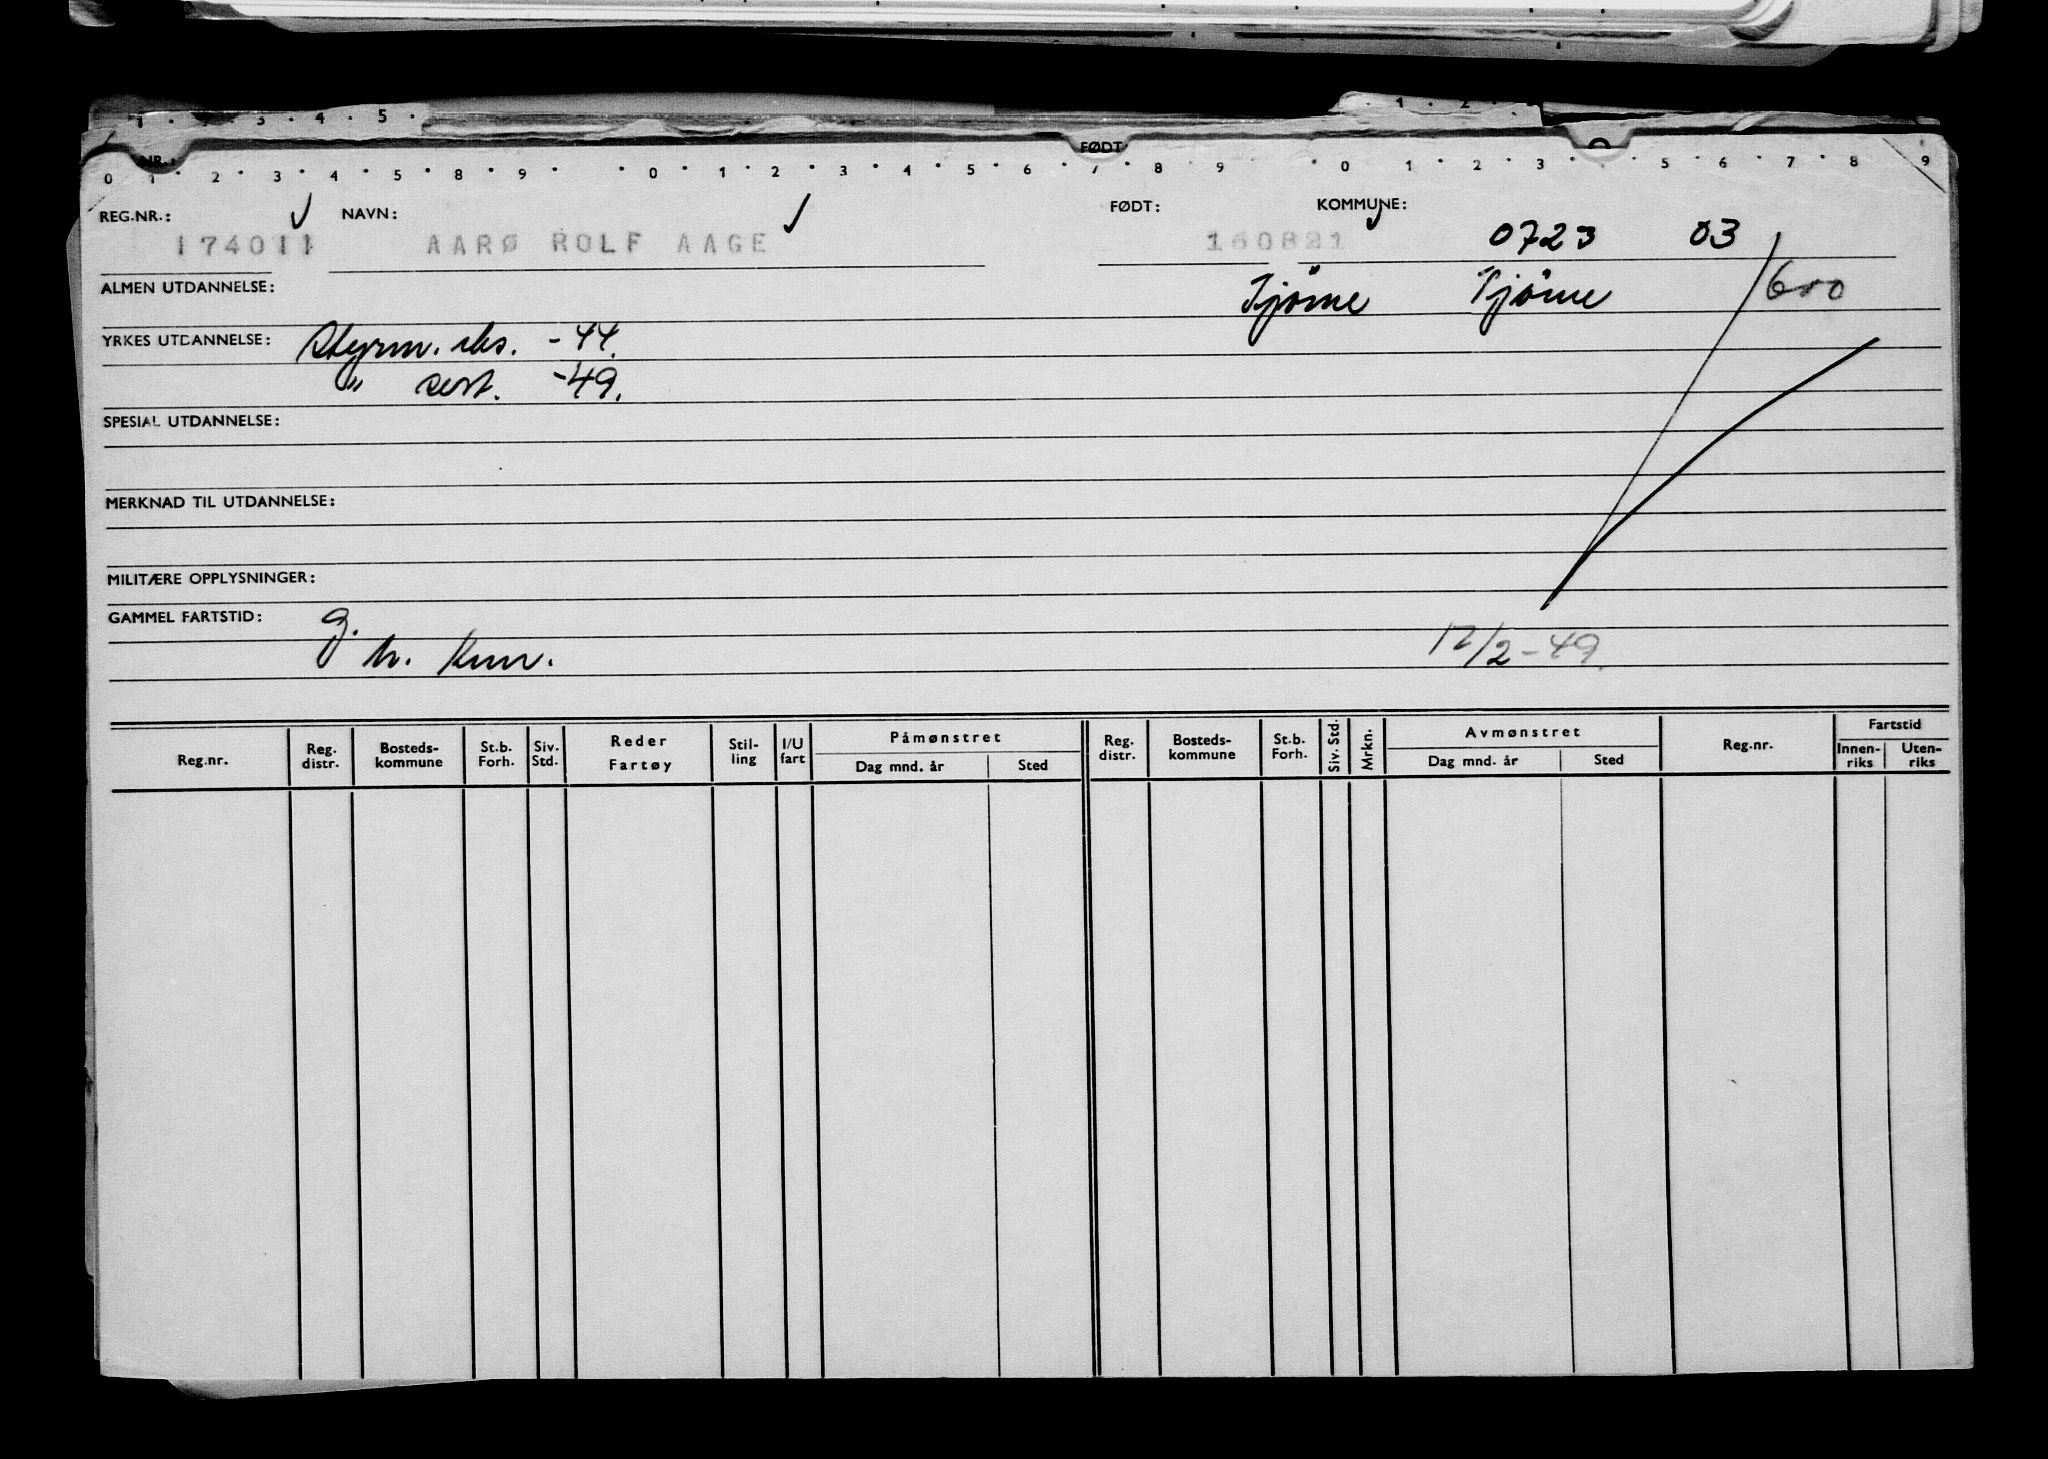 1 . 2 . 3 . 4 . 5 .
1 . 2 .
NR.: FØDT
0 1 . 2 . 3 . 4 . 5 . 8 . 9 . . 0 . 1 . 2 . 3 . 4 . 5 . 6 . 7 . 8 . 9 . 0 . 1 . 2 . 3 . . 5 . 6 . 7 . 8 . 9
REG.NR.: NAVN: FØDT: KOMMUNE:
174011 AARØ ROLF AAGE 160821 0723 03
ALMEN UTDANNELSE: Tjøme Tjøme /600
YRKES UTDANNELSE: Styrm. eks. -44.
" sert. -49.
SPESIAL UTDANNELSE:
MERKNAD TIL UTDANNELSE:
MILITÆRE OPPLYSNINGER:
GAMMEL FARTSTID: g.
h. 12/2-49.
Reg.nr. Reg. distr. Bosteds-kommune St.b. Forh. Siv. Std. Reder Fartøy Stil-ling I/U fart Påmønstret Dag mnd. år Sted Reg. distr. Bosteds-kommune St.b. Forh. Siv. Std. Mrkn. Avmønstret Dag mnd. år Sted Reg.nr. Fartstid Innen-riks Uten-riks